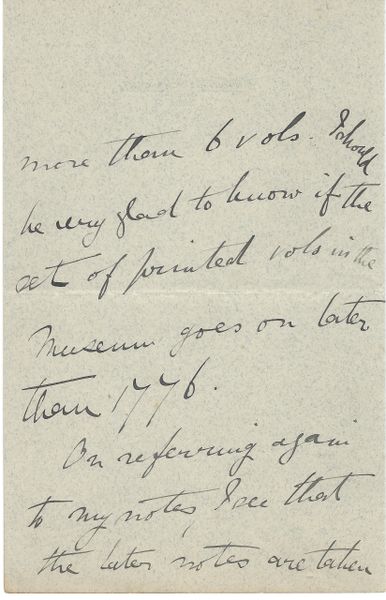 more than 6 vols. I should
be very glad to know if the
set of printed vols in the
Museum goes on later
than 1776.
On referring again
to my notes, I see that
the later notes are taken